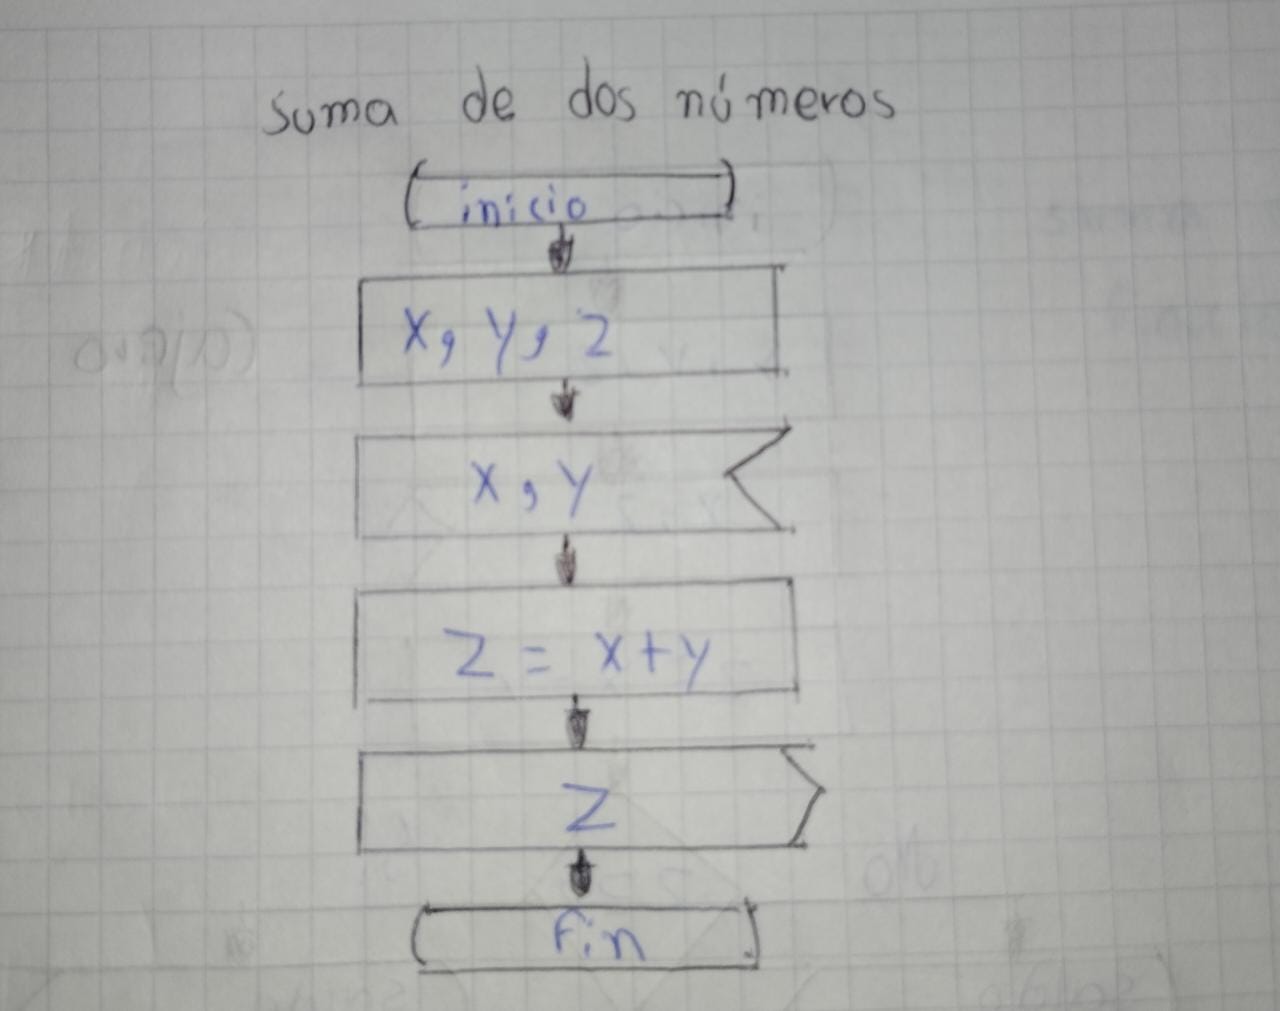 suma de dos números
inicio
x, y, z
x, y
z = x+y
z
fin